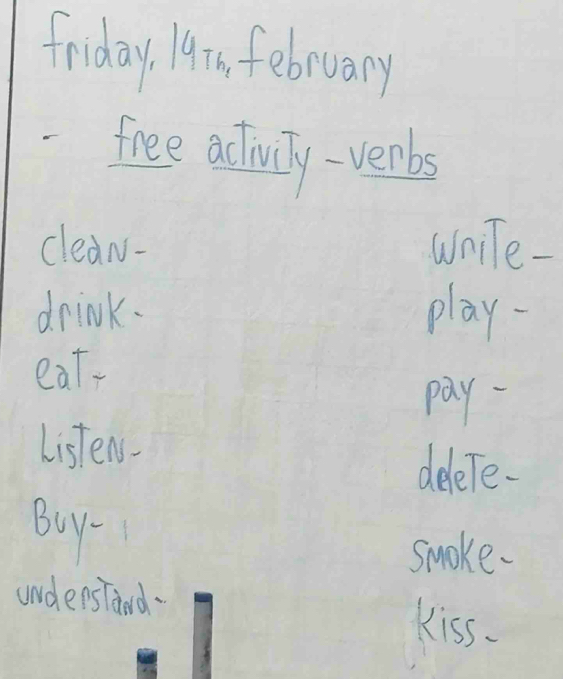 friday, 19Th, february
- free activity - verbs
clean -
drink -
eat -
Listen -
Buy -
understand -
write -
play -
pay -
delete -
smoke -
kiss -